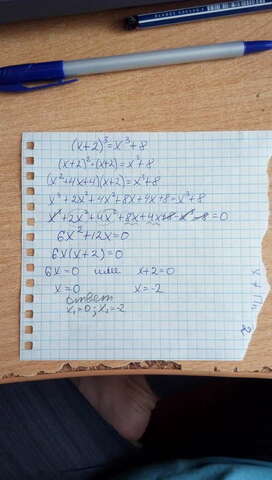 (x+2)³=x³+8
(x+2)²·(x+2)=x³+8
(x²+4x+4)(x+2)=x³+8
x³+2x²+4x²+8x+4x+8=x³+8
x³+2x²+4x²+8x+4x+8-x³-8=0
6x²+12x=0
6x(x+2)=0
6x=0 или x+2=0
x=0 x=-2
Ответ
x₁=0; x₂=-2